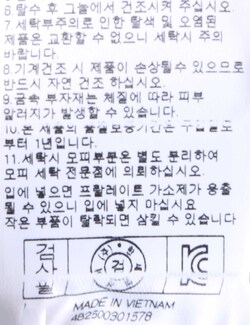 6.탈수 후 그늘에서 건조시켜 주십시오.
7.세탁부주의로 인한 탈색 및 오염된
제품은 교환할 수 없으니 세탁시 주의
바랍니다.
8.기계건조 시 제품이 손상될수 있으므로
반드시 자연 건조 하십시오.
9.금속 부자재는 체질에 따라 피부
알러지가 발생할 수 있습니다.
10.본 제품의 품질보증기간은 구입일로
부터 1년입니다.
11.세탁시 모피부분은 별도 분리하여
모피 세탁 전문점에 의뢰하십시오.
입에 넣으면 프탈레이트 가소제가 용출
될 수 있으니 입에 넣지 마십시요
작은 부품이 탈락되면 삼킬 수 있습니다
검사필
(주) 검
KC
MADE IN VIETNAM
4B2500301578